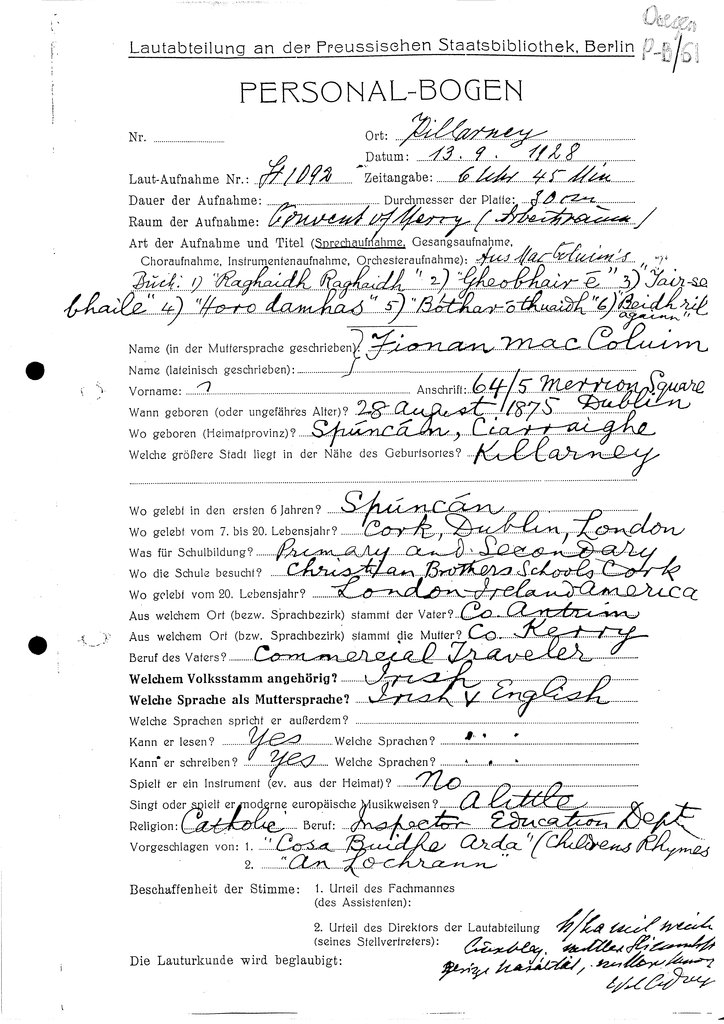 Doegen
P-B/61
Lautabteilung an der Preussischen Staatsbibliothek, Berlin
PERSONAL-BOGEN
Nr.
Ort: Killarney
Datum: 13. 9. 1928
Laut-Aufnahme Nr.: 1092 Zeitangabe: 6 Uhr 45 Min
Dauer der Aufnahme: Durchmesser der Platte: 30 cm
Raum der Aufnahme: Convent of Mercy (Arbeitsraum)
Art der Aufnahme und Titel (Sprechaufnahme, Gesangsaufnahme,
Choraufnahme, Instrumentenaufnahme, Orchesteraufnahme): Aus Mac Coluim's
Buch: 1) "Raghaidh Raghaidh" 2) "Gheobhair é" 3) "Tair-se
bhaile" 4) "Horo damhas" 5) "Bóthar ó thuaidh" 6) "Beidh ril
againn"
Name (in der Muttersprache geschrieben): Fionan mac Coluim
Name (lateinisch geschrieben):
Vorname: Anschrift: 64/5 Merrion Square
Dublin
Wann geboren (oder ungefähres Alter)? 28 August 1875
Wo geboren (Heimatprovinz)? Spúncán, Ciarraighe
Welche größere Stadt liegt in der Nähe des Geburtsortes? Killarney
Wo gelebt in den ersten 6 Jahren? Spúncán
Wo gelebt vom 7. bis 20. Lebensjahr? Cork, Dublin, London
Was für Schulbildung? Primary and Secondary
Wo die Schule besucht? Christian Brothers Schools Cork
Wo gelebt vom 20. Lebensjahr? London Ireland America
Aus welchem Ort (bezw. Sprachbezirk) stammt der Vater? Co. Antrim
Aus welchem Ort (bzw. Sprachbezirk) stammt die Mutter? Co. Kerry
Beruf des Vaters? Commercial Traveler
Welchem Volksstamm angehörig? Irish
Welche Sprache als Muttersprache? Irish & English
Welche Sprachen spricht er außerdem?
Kann er lesen? Yes Welche Sprachen? " "
Kann er schreiben? Yes Welche Sprachen? " "
Spielt er ein Instrument (ev. aus der Heimat)? No
Singt oder spielt er moderne europäische Musikweisen? A little
Religion: Catholic Beruf: Inspector Education Dept
Vorgeschlagen von: 1. "Cosa Buidhe Arda" (Childrens Rhymes
2. "An Lochrann"
Beschaffenheit der Stimme: 1. Urteil des Fachmannes
(des Assistenten):
2. Urteil des Direktors der Lautabteilung
(seines Stellvertreters):
Die Lauturkunde wird beglaubigt: